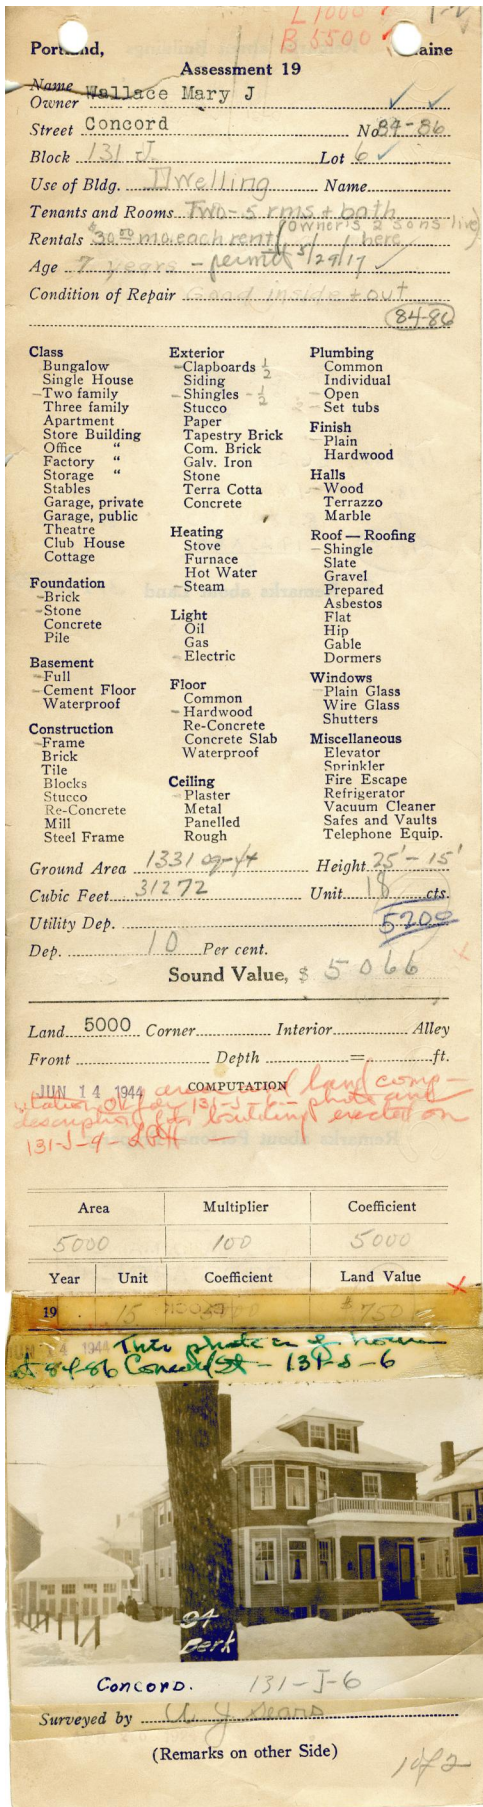 L 1000
B 5500
Portland, Maine
Assessment 19
Name
Owner Wallace Mary J
Street Concord No 84-86
Block 131 J. Lot 6
Use of Bldg. Dwelling Name
Tenants and Rooms Two - 5 rms + bath
(owner's 2 sons live)
Rentals $30.00 mo. each rent here
Age 7 years - permit 5/29/17
Condition of Repair Good inside + out
84-86
Class
Bungalow
Single House
- Two family
Three family
Apartment
Store Building
Office "
Factory "
Storage "
Stables
Garage, private
Garage, public
Theatre
Club House
Cottage
Foundation
- Brick
- Stone
Concrete
Pile
Basement
- Full
- Cement Floor
Waterproof
Construction
- Frame
Brick
Tile
Blocks
Stucco
Re-Concrete
Mill
Steel Frame
Exterior
- Clapboards 1/2
Siding
- Shingles - 1/2
Stucco
Paper
Tapestry Brick
Com. Brick
Galv. Iron
Stone
Terra Cotta
Concrete
Heating
Stove
Furnace
Hot Water
- Steam
Light
Oil
Gas
- Electric
Floor
Common
- Hardwood
Re-Concrete
Concrete Slab
Waterproof
Ceiling
- Plaster
Metal
Panelled
Rough
Plumbing
Common
Individual
- Open
2 - Set tubs
Finish
- Plain
Hardwood
Halls
- Wood
Terrazzo
Marble
Roof — Roofing
- Shingle
Slate
Gravel
Prepared
Asbestos
Flat
Hip
Gable
Dormers
Windows
- Plain Glass
Wire Glass
Shutters
Miscellaneous
Elevator
Sprinkler
Fire Escape
Refrigerator
Vacuum Cleaner
Safes and Vaults
Telephone Equip.
Ground Area 1331 sq-ft Height 25' - 15'
Cubic Feet 31272 Unit 18 cts.
Utility Dep. 5200
Dep. 10 Per cent.
Sound Value, $ 5066
Land 5000 Corner Interior Alley
Front Depth = ft.
JUN 14 1944 COMPUTATION
area and land comp-
utation OK for 131-J-6 - photo and
description for building erected on
131-J-9 -
Area Multiplier Coefficient
5000 100 5000
Year Unit Coefficient Land Value
19 15 $750
JUN 14 1944 This photo is of house
at 84-86 Concord St - 131-J-6
84
Berk
Concord. 131-J-6
Surveyed by W J Sears
(Remarks on other Side)
1 of 2